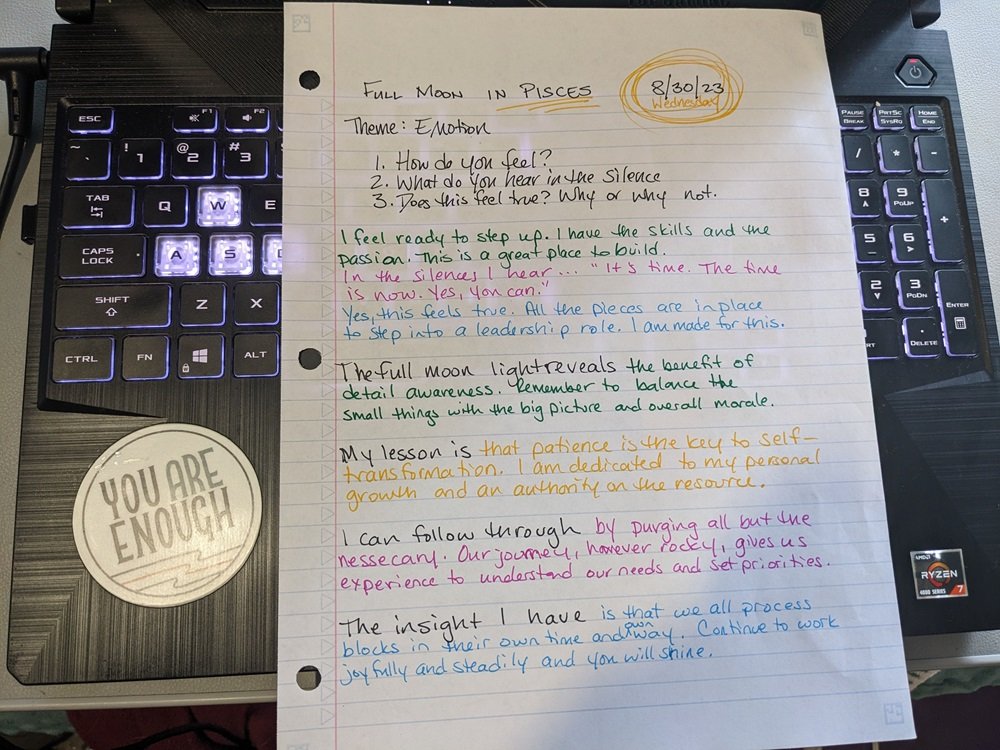 FULL MOON IN PISCES
8/30/23
Wednesday
Theme: EMOTION
1. How do you feel?
2. What do you hear in the silence
3. Does this feel true? Why or why not.
I feel ready to step up. I have the skills and the
passion. This is a great place to build.
In the silences I hear... "It's time. The time
is now. Yes, you can."
Yes, this feels true. All the pieces are in place
to step into a leadership role. I am made for this.
The full moon light reveals the benefit of
detail awareness. Remember to balance the
small things with the big picture and overall morale.
My lesson is that patience is the key to self-
transformation. I am dedicated to my personal
growth and an authority on the resource.
I can follow through by purging all but the
nessecary. Our journey, however rocky, gives us
experience to understand our needs and set priorities.
The insight I have is that we all process
blocks in their own time and own way. Continue to work
joyfully and steadily and you will shine.
YOU ARE
ENOUGH
ESC
F1
F2
~ `
! 1
@ 2
# 3
TAB
Q
W
E
CAPS
LOCK
A
S
SHIFT
Z
X
CTRL
FN
ALT
PAUSE
BREAK
PRTSC
SYSRQ
HOME
END
/
*
-
8
9
PGUP
+
5
6
2
3
PGDN
ENTER
DELETE
AMD
RYZEN
7
4000 SERIES